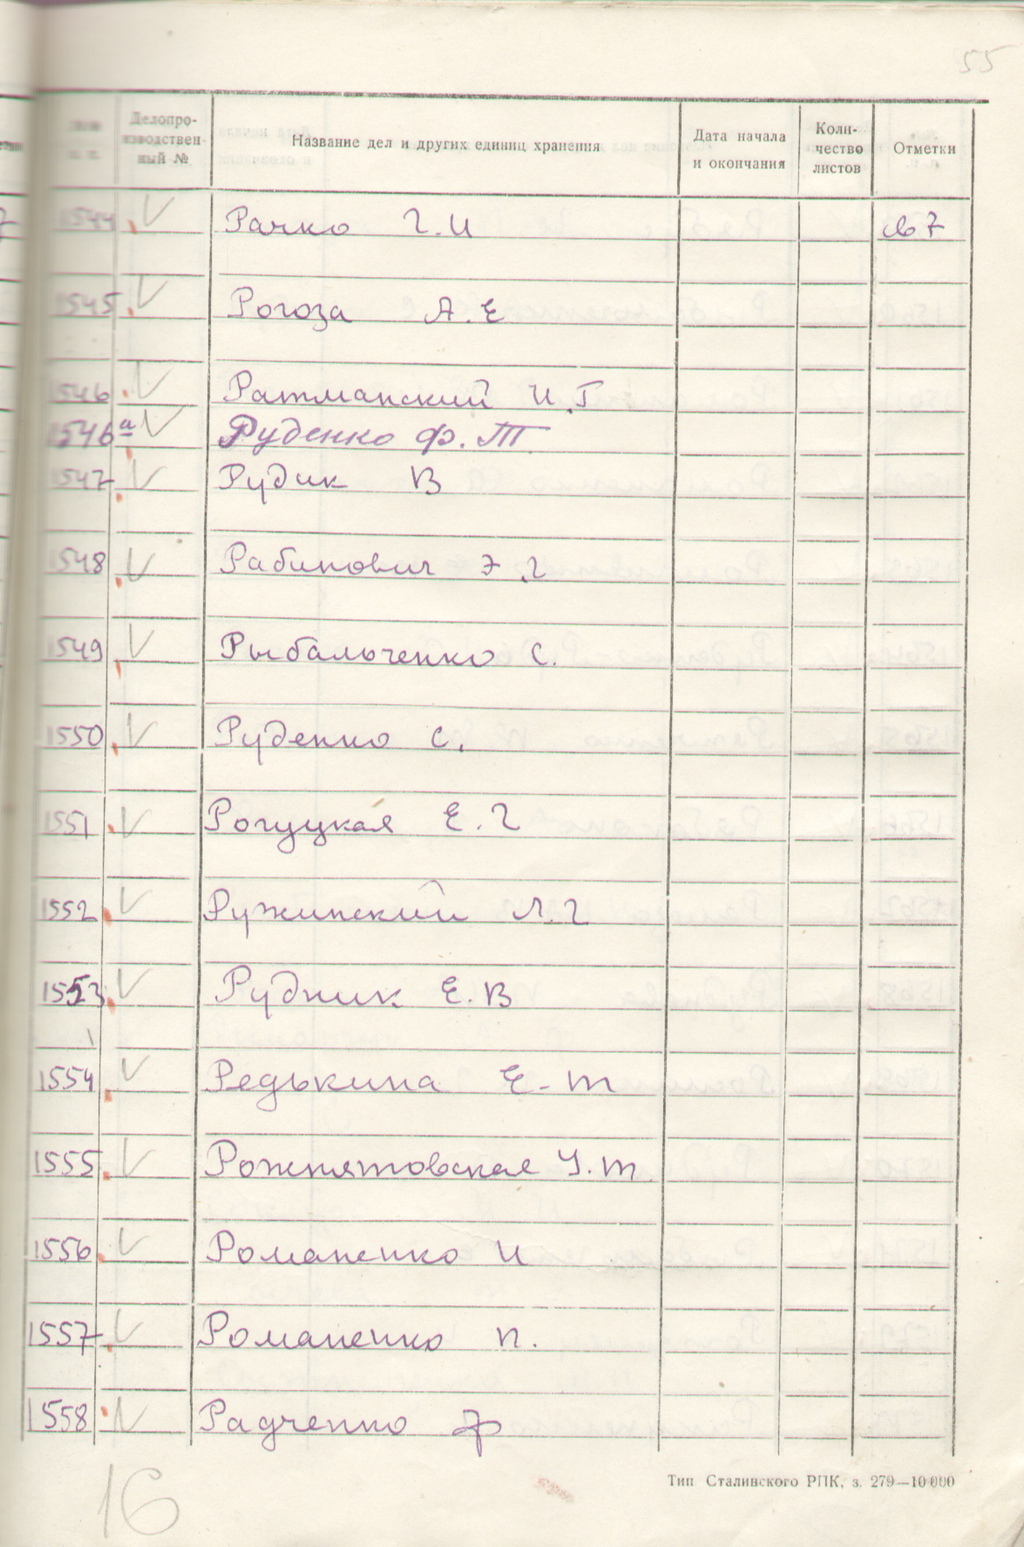 55
Делопро-
изводствен-
ный №
Название дел и других единиц хранения
Дата начала
и окончания
Коли-
чество
листов
Отметки
1544 V Рачко Г.И
1545 V Рогоза А.Е
1546 V Ратманский И.Г
1546а V Руденко Ф.Т
1547 V Рудик В
1548 V Рабинович Э.Г
1549 V Рыбальченко С.
1550 V Руденко С.
1551 V Рогуцкая Е.Г
1552 V Ружинский Л.Г
1553 V Рудник Е.В
1554 V Редькина Е-т
1555 V Рожнятовская У.т
1556 V Романенко И
1557 V Романенко П.
1558 V Радченко Ф
Тип Сталинского РПК, з. 279—10 000
16